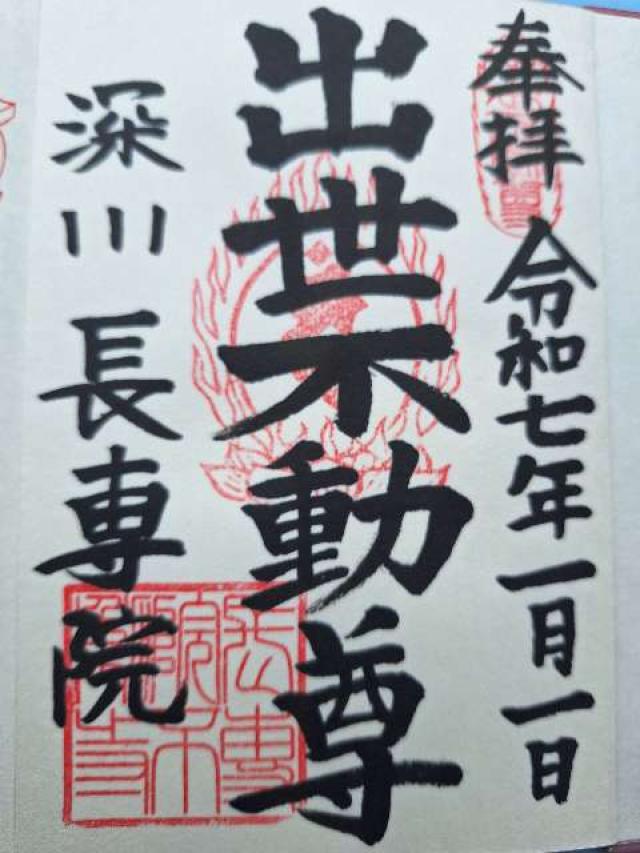 奉拝 令和七年一月一日
出世不動尊
深川 長専院